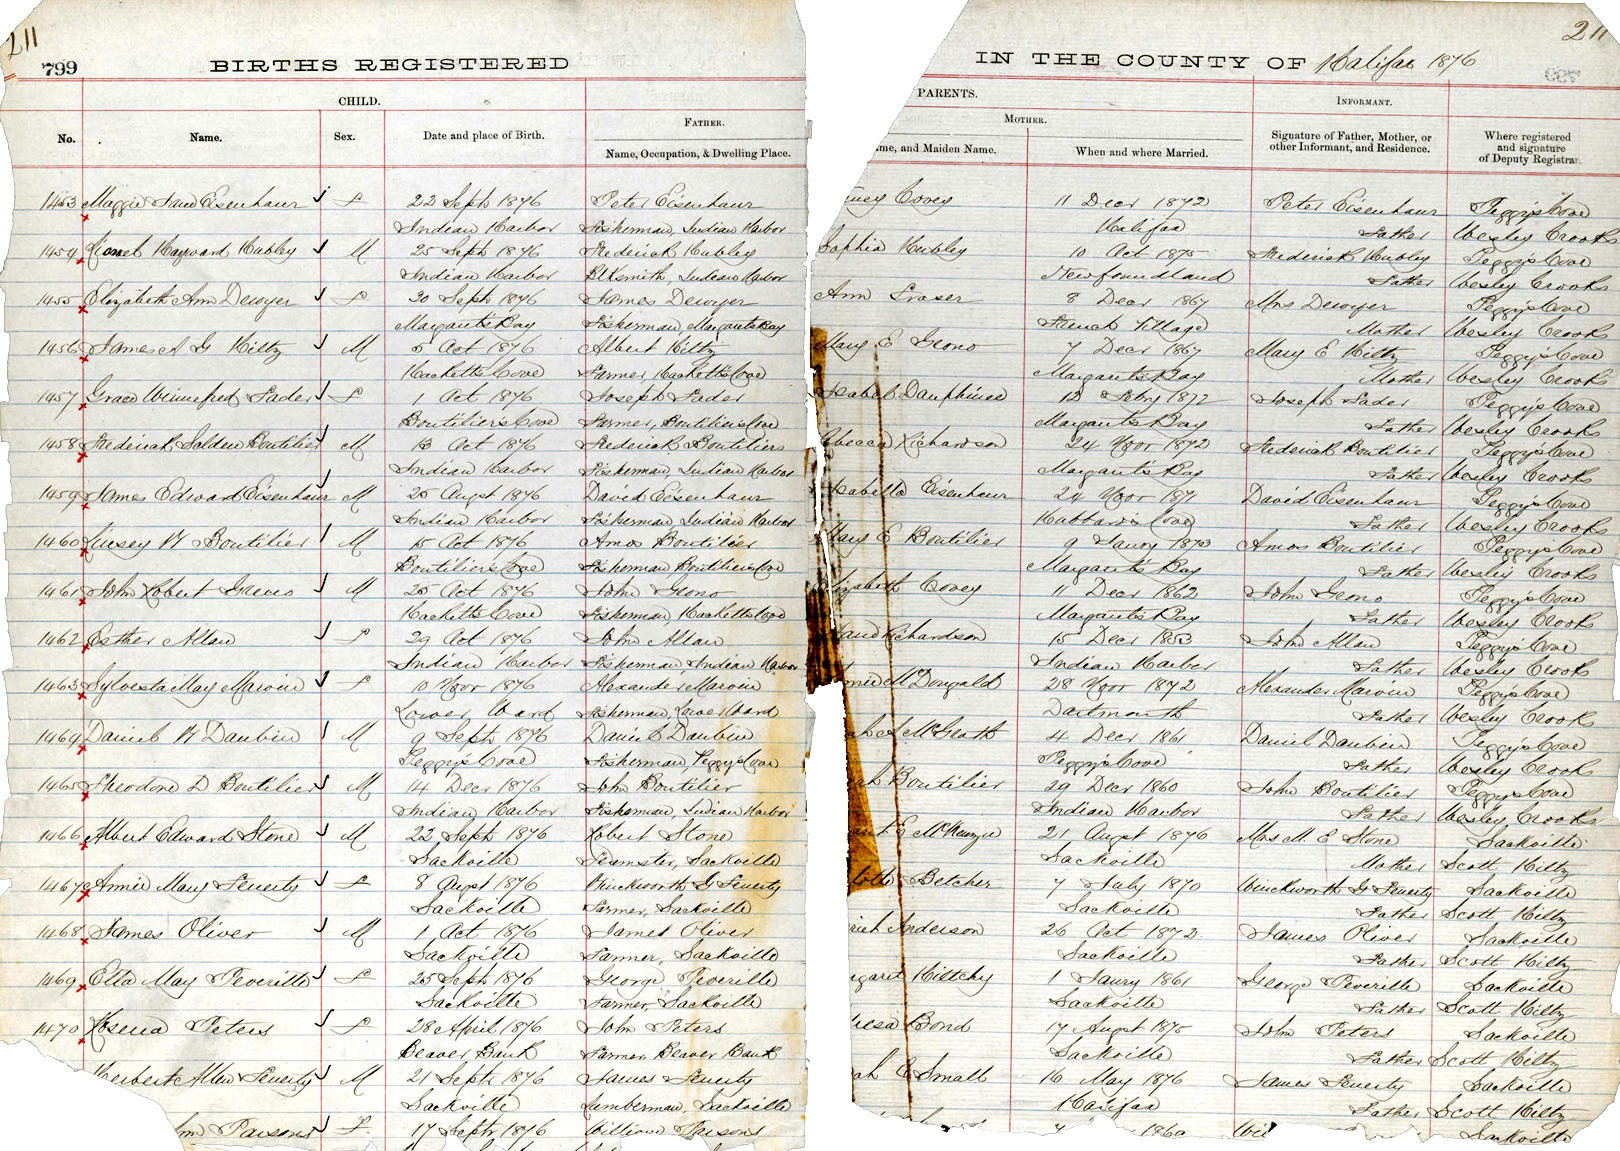 211
211
799
BIRTHS REGISTERED
IN THE COUNTY OF Halifax 1876
CHILD.
PARENTS.
No.
Name.
Sex.
Date and place of Birth.
FATHER.
Name, Occupation, & Dwelling Place.
MOTHER.
me, and Maiden Name.
When and where Married.
INFORMANT.
Signature of Father, Mother, or
other Informant, and Residence.
Where registered
and signature
of Deputy Registrar
1453 Maggie Jane Eisenhaur F 22 Sept 1876 Peter Eisenhaur Covey 11 Decr 1872 Peter Eisenhaur Peggy's Cove
Indian Harbor Fisherman, Indian Harbor Halifax Father Wesley Crooks
1454 Hayward Hubley M 25 Sept 1876 Frederick Hubley Sophia Hubley 10 Oct 1875 Frederick Hubley Peggy's Cove
Indian Harbor Blksmith, Indian Harbor Newfoundland Father Wesley Crooks
1455 Elizabeth Ann Dewyer F 20 Sept 1876 James Dewyer Ann Fraser 8 Decr 1867 Mrs Dewyer Peggy's Cove
Margarets Bay Fisherman, Margarets Bay French Village Mother Wesley Crooks
1456 James A G Hiltz M 5 Oct 1876 Albert Hiltz Mary E Grono 7 Decr 1867 Mary E Hiltz Peggy's Cove
Hacketts Cove Farmer, Hacketts Cove Margarets Bay Mother Wesley Crooks
1457 Grace Winnefred Fader F 1 Oct 1876 Joseph Fader Isabel Dauphinee 12 Feby 1872 Joseph Fader Peggy's Cove
Boutiliers Cove Farmer, Boutiliers Cove Margarets Bay Father Wesley Crooks
1458 Frederick Selden Boutilier M 13 Oct 1876 Frederick Boutiliers ebecca Richardson 24 Novr 1872 Frederick Boutilier Peggy's Cove
Indian Harbor Fisherman, Indian Harbor Margarets Bay Father Wesley Crooks
1459 James Edward Eisenhaur M 25 Augst 1876 David Eisenhaur Isabella Eisenhaur 24 Novr 1871 David Eisenhaur Peggy's Cove
Indian Harbor Fisherman, Indian Harbor Hubbards Cove Father Wesley Crooks
1460 W Boutilier M 15 Oct 1876 Amos Boutilier Mary E Boutilier 9 Janry 1873 Amos Boutilier Peggy's Cove
Boutiliers Cove Fisherman, Boutiliers Cove Margarets Bay Father Wesley Crooks
1461 John Robert Grono M 25 Oct 1876 John Grono Elizabeth Covey 11 Decr 1862 John Grono Peggy's Cove
Hacketts Cove Fisherman, Hacketts Cove Margarets Bay Father Wesley Crooks
1462 Esther Allan F 29 Oct 1876 John Allan Richardson 15 Decr 1853 John Allan Peggy's Cove
Indian Harbor Fisherman, Indian Harbor Indian Harbor Father Wesley Crooks
1463 Sylvesta May Marvin F 10 Novr 1876 Alexander Marvin McDougald 28 Novr 1872 Alexander Marvin Peggy's Cove
Lower Ward Fisherman, Lower Ward Dartmouth Father Wesley Crooks
1464 Daniel W Daubin M 9 Sept 1876 Daniel Daubin ah A McGrath 4 Decr 1861 Daniel Daubin Peggy's Cove
Peggy's Cove Fisherman, Peggy's Cove Peggy's Cove Father Wesley Crooks
1465 Theodore D Boutilier M 14 Decr 1876 John Boutilier ah Boutilier 29 Decr 1860 John Boutilier Peggy's Cove
Indian Harbor Fisherman, Indian Harbor Indian Harbor Father Wesley Crooks
1466 Albert Edward Stone M 22 Sept 1876 Robert Stone E McKenzie 21 Augst 1876 Mrs M. E Stone Sackville
Sackville Teamster, Sackville Sackville Mother Scott Hiltz
1467 Annie Mary Feuerty F 8 Augst 1876 Winckworth G Feuerty lotte Betcher 7 July 1870 Winckworth G Feuerty Sackville
Sackville Farmer, Sackville Sackville Father Scott Hiltz
1468 James Oliver M 1 Oct 1876 James Oliver riah Anderson 26 Oct 1872 James Oliver Sackville
Sackville Farmer, Sackville Sackville Father Scott Hiltz
1469 Etta May Peverille F 25 Sept 1876 George Peverille rgaret Hiltchy 1 Janry 1861 George Peverille Sackville
Sackville Farmer, Sackville Sackville Father Scott Hiltz
1470 Rosena Peters F 28 April 1876 John Peters resa Bond 17 Augst 1875 John Peters Sackville
Beaver Bank Farmer, Beaver Bank Sackville Father Scott Hiltz
Herbert Allen Feuerty M 21 Sept 1876 James Feuerty ah E Small 16 May 1876 James Feuerty Sackville
Sackville Lumberman, Sackville Halifax Father Scott Hiltz
Parsons F 17 Sept 1876 William Parsons 7 1860 Wil Sackville